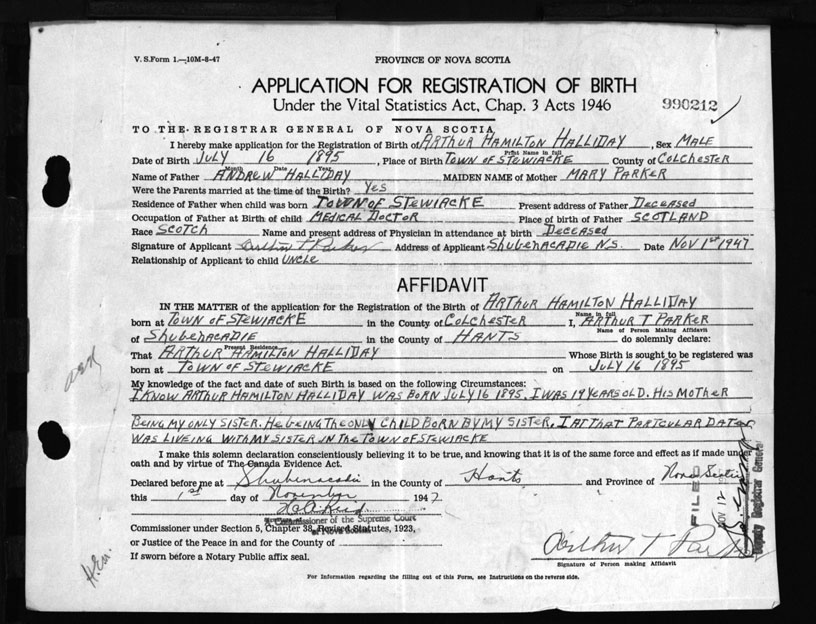 V. S. Form 1.—10M-8-47
PROVINCE OF NOVA SCOTIA
APPLICATION FOR REGISTRATION OF BIRTH
Under the Vital Statistics Act, Chap. 3 Acts 1946
990212
TO THE REGISTRAR GENERAL OF NOVA SCOTIA
I hereby make application for the Registration of Birth of ARTHUR HAMILTON HALLIDAY, Sex MALE
Print Name in full
Date of Birth JULY 16 1895, Place of Birth TOWN OF STEWIACKE County of COLCHESTER
Month Date Year
Name of Father ANDREW HALLIDAY MAIDEN NAME of Mother MARY PARKER
Were the Parents married at the time of the Birth? YES
Residence of Father when child was born TOWN OF STEWIACKE Present address of Father DECEASED
Occupation of Father at Birth of child MEDICAL DOCTOR Place of birth of Father SCOTLAND
Race SCOTCH Name and present address of Physician in attendance at birth DECEASED
Signature of Applicant Arthur T Parker Address of Applicant SHUBENACADIE N.S. Date NOV 1st 1947
Relationship of Applicant to child UNCLE
AFFIDAVIT
IN THE MATTER of the application for the Registration of the Birth of ARTHUR HAMILTON HALLIDAY
Name in full
born at TOWN OF STEWIACKE in the County of COLCHESTER I, ARTHUR T PARKER
Name of Person Making Affidavit
of SHUBENACADIE in the County of HANTS do solemnly declare:
Present Residence
That ARTHUR HAMILTON HALLIDAY Whose Birth is sought to be registered was
born at TOWN OF STEWIACKE on JULY 16 1895
My knowledge of the fact and date of such Birth is based on the following Circumstances:
I KNOW ARTHUR HAMILTON HALLIDAY WAS BORN JULY 16 1895. I WAS 19 YEARS OLD. HIS MOTHER
BEING MY ONLY SISTER. HE BEING THE ONLY CHILD BORN BY MY SISTER. I AT THAT PARTCULAR DATE
WAS LIVEING WITH MY SISTER IN THE TOWN OF STEWIACKE
I make this solemn declaration conscientiously believing it to be true, and knowing that it is of the same force and effect as if made under
oath and by virtue of The Canada Evidence Act.
Declared before me at Shubenacadie in the County of Hants and Province of Nova Scotia
this 1st day of November 1947
A Commissioner of the Supreme Court
of Nova Scotia
Commissioner under Section 5, Chapter 38, Revised Statutes, 1923,
or Justice of the Peace in and for the County of
If sworn before a Notary Public affix seal.
Arthur T Parker
Signature of Person making Affidavit
FILED
NOV 12
Deputy Registrar General
For Information regarding the filling out of this Form, see Instructions on the reverse side.